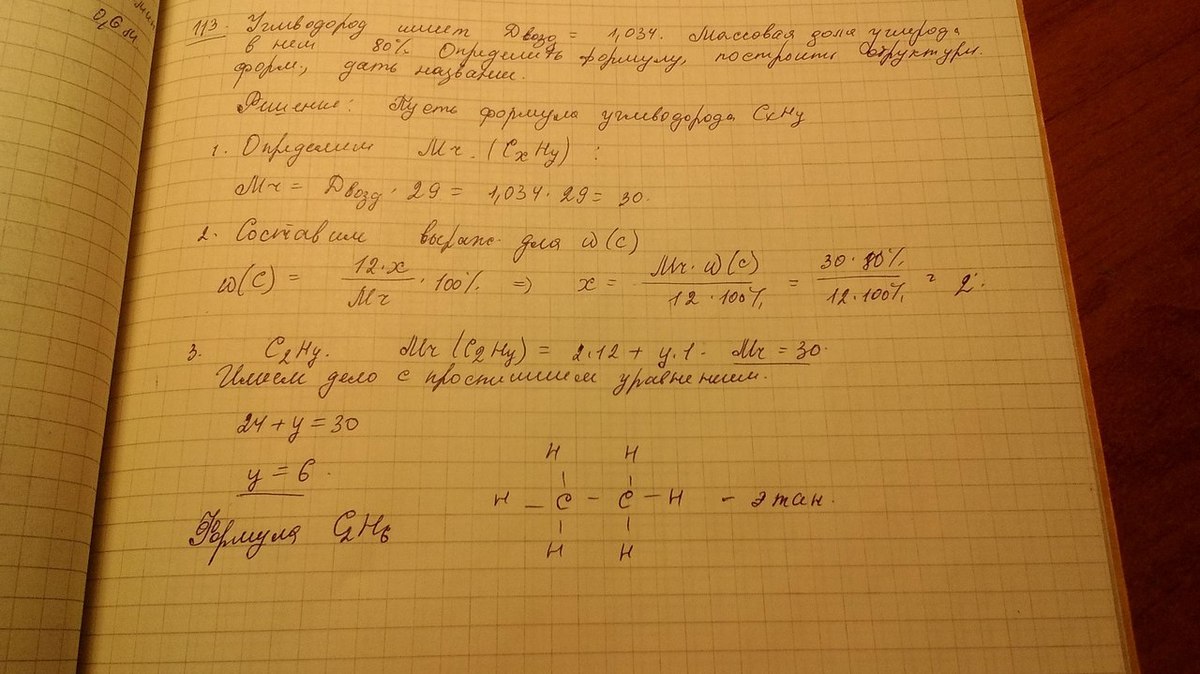 О₂Gм
113. Углеводород имеет Dвозд = 1,034. Массовая доля углерода
в нем 80% Определить формулу, построить структурн.
форм., дать название.
Решение: Пусть формула углеводорода CxHy
1. Определим Mr (CxHy) :
Mr = Dвозд · 29 = 1,034 · 29 = 30.
2. Составим выраж. для ω(C)
ω(C) = 12·x / Mr · 100% => x = Mr · ω(C) / 12 · 100% = 30 · 80% / 12 · 100% = 2.
3. C₂Hy. Mr (C₂Hy) = 2·12 + y·1. Mr = 30.
Имеем дело с простейшим уравнением.
24 + y = 30
y = 6.
Формула C₂H₆
H H
H – C – C – H – этан.
H H